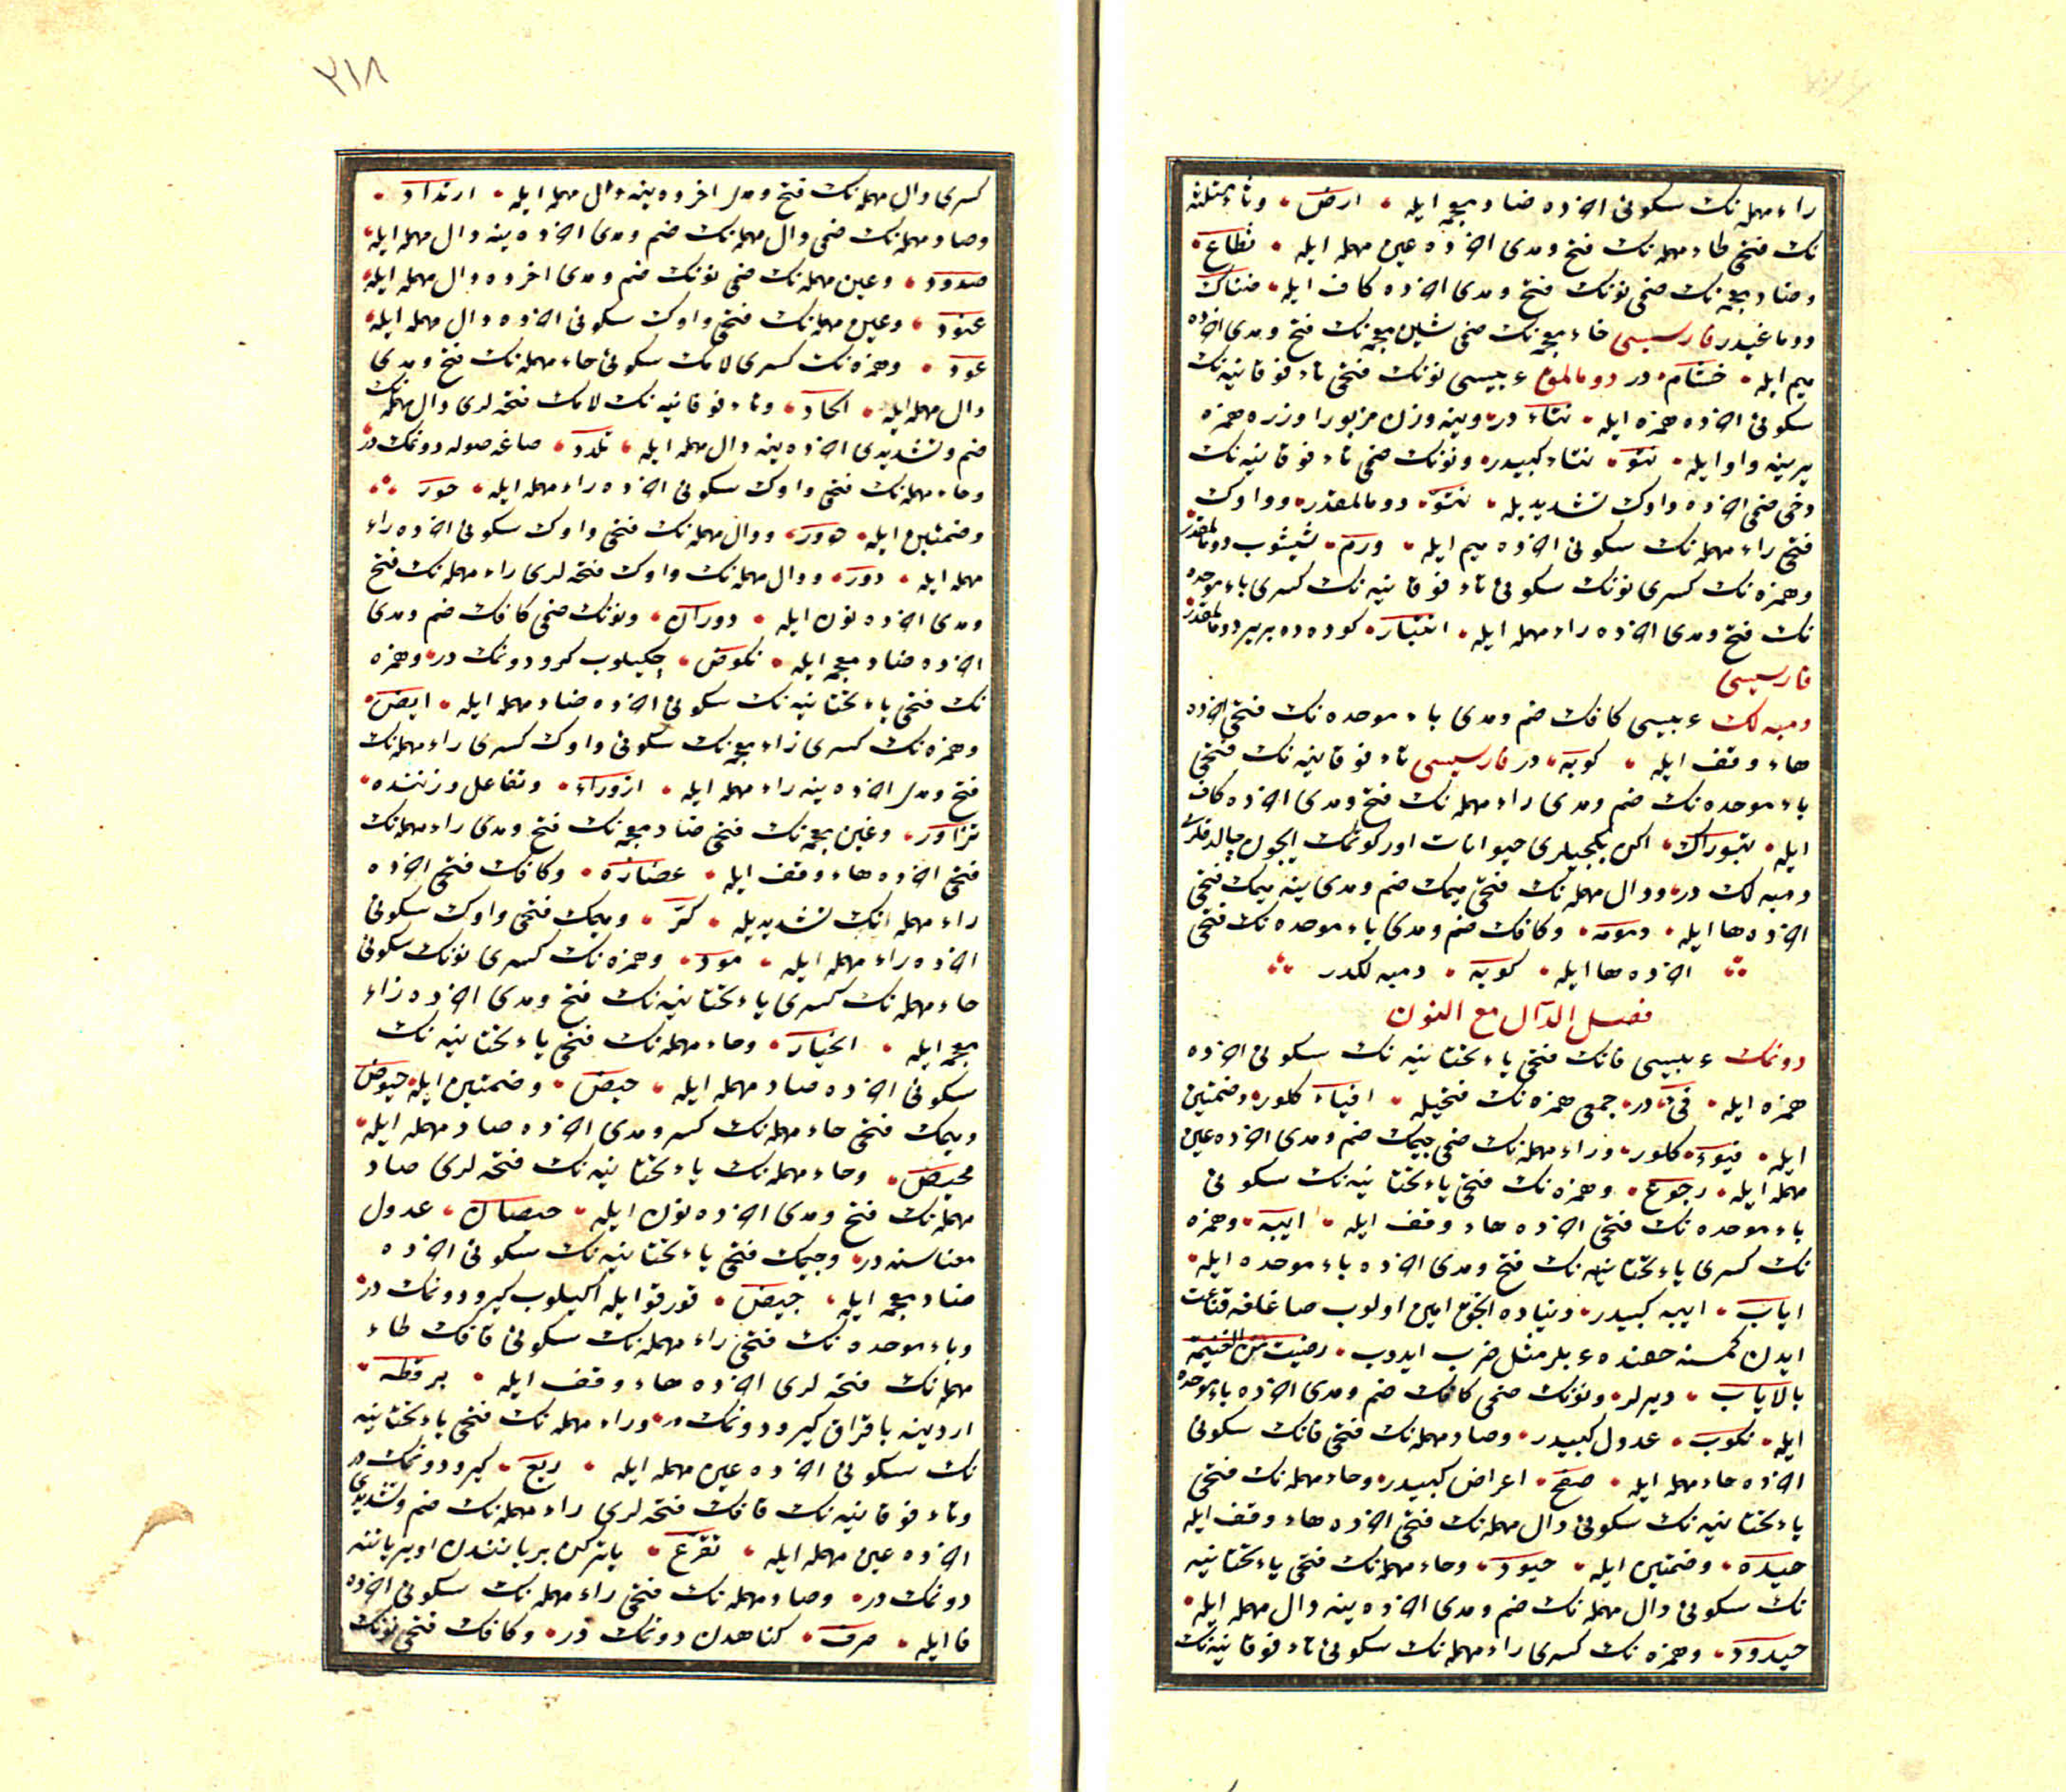 راء مهمله نك سكونی اخرده ضاد معجمه ایله ارض وثاء مثلثه
نك فتحی طاء مهمله نك فتح ومدی اخرده عین مهمله ایله ثطاع
وضاد معجمه نك ضمی نونك فتح ومدی اخرده كاف ایله ضناك
دوماغیدر فارسیسی خاء معجمه نك ضمی شین معجمه نك فتح ومدی اخرده
میم ایله خشام در دومالمق عربیسی نونك فتحی تاء فوقانیه نك
سكونی اخرده همزه ایله نتاء در وینه وزن مزبور اوزره همزه
یرینه واو ایله نتو نتاء كبیدر ونونك ضمی تاء فوقانیه نك
دخی ضمی اخرده واوك تشدیدیله نتو دومالمقدر وواوك
فتحی راء مهمله نك سكونی اخرده میم ایله ورم شیشوب دومالمقدر
وهمزه نك كسری نونك سكونی تاء فوقانیه نك كسری باء موحده
نك فتح ومدی اخرده راء مهمله ایله انتبار كوده ده بریر دومالمقدر
فارسیسی
دمبه لك عربیسی كافك ضم ومدی باء موحده نك فتحی اخرده
هاء وقف ایله كوبه در فارسیسی تاء فوقانیه نك فتحی
باء موحده نك ضم ومدی راء مهمله نك فتح ومدی اخرده كاف
ایله تبوراك اكن بكجیلری حیوانات اوركوتمك ایچون چالدقلری
دمبه لك در ودال مهمله نك فتحی میمك ضم ومدی ینه میمك فتحی
اخرده ها ایله دمومه وكافك ضم ومدی باء موحده نك فتحی
اخرده ها ایله كوبه دمبه لكدر
فصل الدال مع النون
دونمك عربیسی فانك فتحی یاء تحتانیه نك سكونی اخرده
همزه ایله فیء در جمعی همزه نك فتحیله افیاء كلور وضمتین
ایله فیوء كلور وراء مهمله نك ضمی جیمك ضم ومدی اخرده عین
مهمله ایله رجوع وهمزه نك فتحی یاء تحتانیه نك سكونی
باء موحده نك فتحی اخرده هاء وقف ایله ایبه وهمزه
نك كسری یاء تحتانیه نك فتح ومدی اخرده باء موحده ایله
ایاب ایبه كبیدر دنیاده انجق امین اولوب صاغلغه قناعت
ایدن كمسنه حقنده عربلر مثل ضرب ایدوب رضیت من الغنیمة
بالایاب دیرلر ونونك ضمی كافك ضم ومدی اخرده باء موحده
ایله نكوب عدول كبیدر وصاد مهمله نك فتحی فانك سكونی
اخرده حاء مهمله ایله صفح اعراض كبیدر وحاء مهمله نك فتحی
یاء تحتانیه نك سكونی دال مهمله نك فتحی اخرده هاء وقف ایله
حیده وضمتین ایله حیود وحاء مهمله نك فتحی یاء تحتانیه
نك سكونی دال مهمله نك ضم ومدی اخرده ینه دال مهمله ایله
حیدود وهمزه نك كسری راء مهمله نك سكونی تاء فوقانیه نك
٢١٨
كسری دال مهمله نك فتح ومدی اخرده ینه دال مهمله ایله ارتداد
وصاد مهمله نك ضمی دال مهمله نك ضم ومدی اخرده ینه دال مهمله ایله
صدود وعین مهمله نك ضمی نونك ضم ومدی اخرده دال مهمله ایله
عنود وعین مهمله نك فتحی واوك سكونی اخرده دال مهمله ایله
عود وهمزه نك كسری لامك سكونی حاء مهمله نك فتح ومدی
دال مهمله ایله الحاد وتاء فوقانیه نك لامك فتحه لری دال مهمله نك
ضم وتشدیدی اخرده ینه دال مهمله ایله تلدد صاغه صوله دونمك در
وحاء مهمله نك فتحی واوك سكونی اخرده راء مهمله ایله حور
وضمتین ایله حوور ودال مهمله نك فتحی واوك سكونی اخرده راء
مهمله ایله دور ودال مهمله نك واوك فتحه لری راء مهمله نك فتح
ومدی اخرده نون ایله دوران ونونك ضمی كافك ضم ومدی
اخرده ضاد معجمه ایله نكوض چكیلوب كرو دونمك در وهمزه
نك فتحی یاء تحتانیه نك سكونی اخرده ضاد مهمله ایله ایض
وهمزه نك كسری زاء معجمه نك سكونی واوك كسری راء مهمله نك
فتح ومدی اخرده ینه راء مهمله ایله ازورار وتفاعل وزننده
تزاور وغین معجمه نك فتحی ضاد معجمه نك فتح ومدی راء مهمله نك
فتحی اخرده هاء وقف ایله غضاره وكافك فتحی اخرده
راء مهمله نك تشدیدیله كر ومیمك فتحی واوك سكونی
اخرده راء مهمله ایله مور وهمزه نك كسری نونك سكونی
حاء مهمله نك كسری یاء تحتانیه نك فتح ومدی اخرده زاء
معجمه ایله انحیاز وحاء مهمله نك فتحی یاء تحتانیه نك
سكونی اخرده صاد مهمله ایله حیص وضمتین ایله حیوص
ومیمك فتحی حاء مهمله نك كسر ومدی اخرده صاد مهمله ایله
محیص وحاء مهمله نك یاء تحتانیه نك فتحه لری صاد
مهمله نك فتح ومدی اخرده نون ایله حیصان عدول
معناسنه در وجیمك فتحی یاء تحتانیه نك سكونی اخرده
ضاد معجمه ایله جیض قورقو ایله اكیلوب كیرو دونمك در
وباء موحده نك فتحی راء مهمله نك سكونی قافك طاء
مهمله نك فتحه لری اخرده هاء وقف ایله برقطه
اردینه باقراق كیرو دونمك در وراء مهمله نك فتحی یاء تحتانیه
نك سكونی اخرده عین مهمله ایله ریع كیرو دونمك در
وتاء فوقانیه نك قافك فتحه لری راء مهمله نك ضم وتشدیدی
اخرده عین مهمله ایله تقرع یاتركن بر یانندن اوبر یاننه
دونمك در وصاد مهمله نك فتحی راء مهمله نك سكونی اخرده
فا ایله صرف كناهدن دونمك در وكافك فتحی نونك